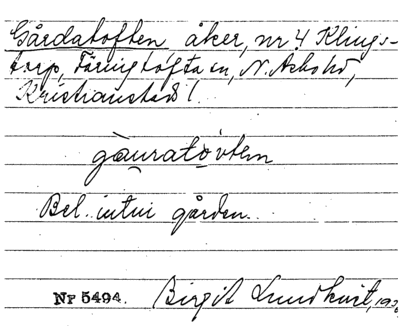 Gårdatoften, åker, nr 4 Klings-
torp, Färingtofta sn, N. Åsbo hd,
Kristianstads l.
gåuratòvten
Bel. intui gården.
Nr 5494. Birgit Lundkvist,